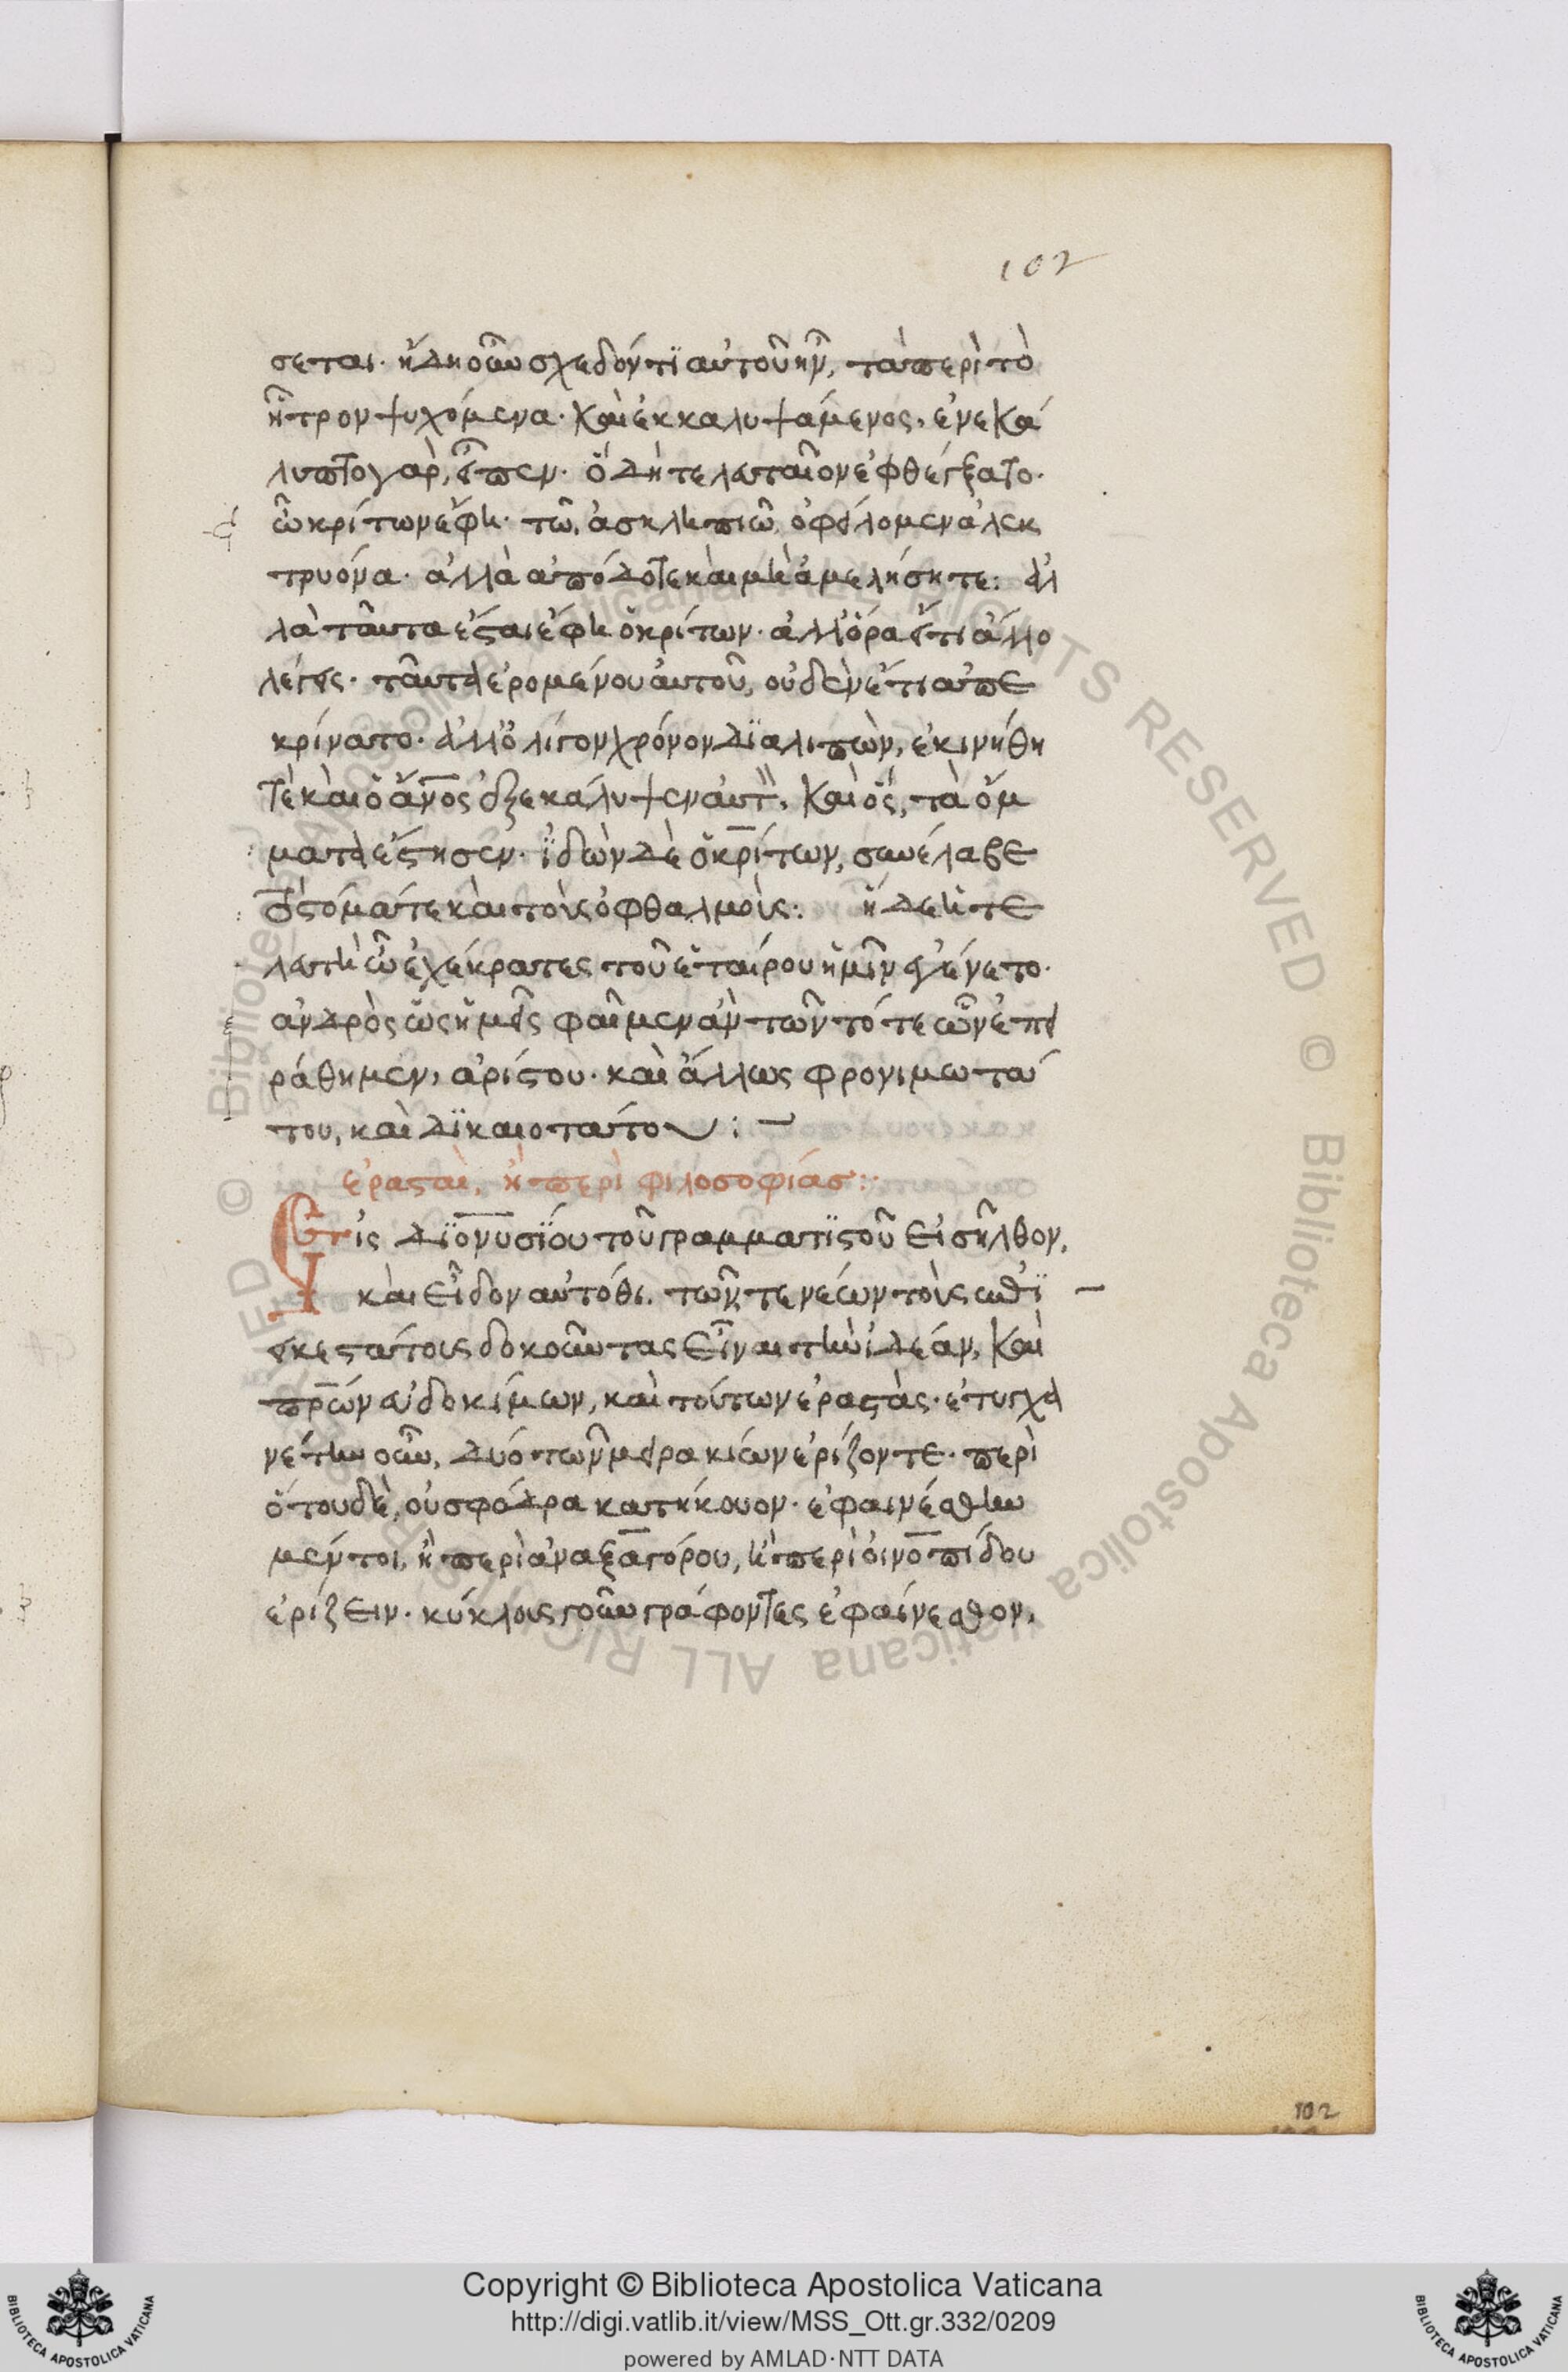 102
σεται· ἤδη οὖν σχεδόν τϊ αὐτοῦ ἦν, τὰ περὶ τὸ
ἦτρον ψυχόμενα· καὶ ἐκκαλυψάμενος, ἐνεκά
λυπτο γὰρ, εἶπεν· ὃ δὴ τελευταῖον ἐφθέγξατο·
ὦ κρίτων ἔφη· τῶ ἀσκληπιῶ ὀφείλομεν ἀλεκ
τρυόνα· ἀλλὰ ἀπόδοτε καὶ μὴ ἀμελήσητε: ἀλ
λὰ ταῦτα ἔσται ἔφη ὁ κρίτων· ἀλλ' ὅρα εἴ τι ἄλλο
λέγεις· ταῦτα ἐρομένου αὐτοῦ, οὐδὲν ἔτι ἀπε
κρίνατο· ἀλλ' ὀλίγον χρόνον δϊαλιπὼν, ἐκινήθη
τὲ καὶ ὁ ἄνος ἐξεκάλυψεν αὐτ, καὶ ὃς, τὰ ὄμ
ματα ἔστησεν· ἰδὼν δὲ ὁ κρίτων, συνέλαβε
τὸ στόμα τε καὶ τοὺς ὀφθαλμοὺς· ἥδε ἡ τε
λευτὴ ὦ ἐχέκρατες τοῦ ἑταίρου ἡμῖν ἐγένετο·
ἀνδρὸς ὡς ἡμεῖς φαῖμεν ἂν τῶν τότε ὧν ἐπει
ράθημεν, ἀρίστου· καὶ ἄλλως φρονιμωτά
του, καὶ δϊκαιοτάτου: –
ἐρασταὶ, ἢ περὶ φιλοσοφίας:·
Εἰς Δϊονυσϊου τοῦ γραμματϊστοῦ εἰσῆλθον,
καὶ εἶδον αὐτόθι. τῶν τε νέων τοὺς ἐπϊ –
εικεστάτους δοκοῦντας εἶναι τὴν ἰδέαν, καὶ
πρων εὐδοκίμων, καὶ τούτων ἐραστὰς· ἐτυγχα
νέτην οὖν, δύο τῶν μειρακίων ἐρίζοντε· περὶ
ὅτου δὲ, οὐ σφόδρα κατήκουον· ἐφαινέσθην
μέντοι, ἢ περὶ ἀναξαγόρου, ἢ περὶ οἰνοπίδου
ἐρίζειν· κύκλους γοῦν γράφοντες ἐφαίνεσθον,
102
Copyright © Biblioteca Apostolica Vaticana
http://digi.vatlib.it/view/MSS_Ott.gr.332/0209
powered by AMLAD·NTT DATA